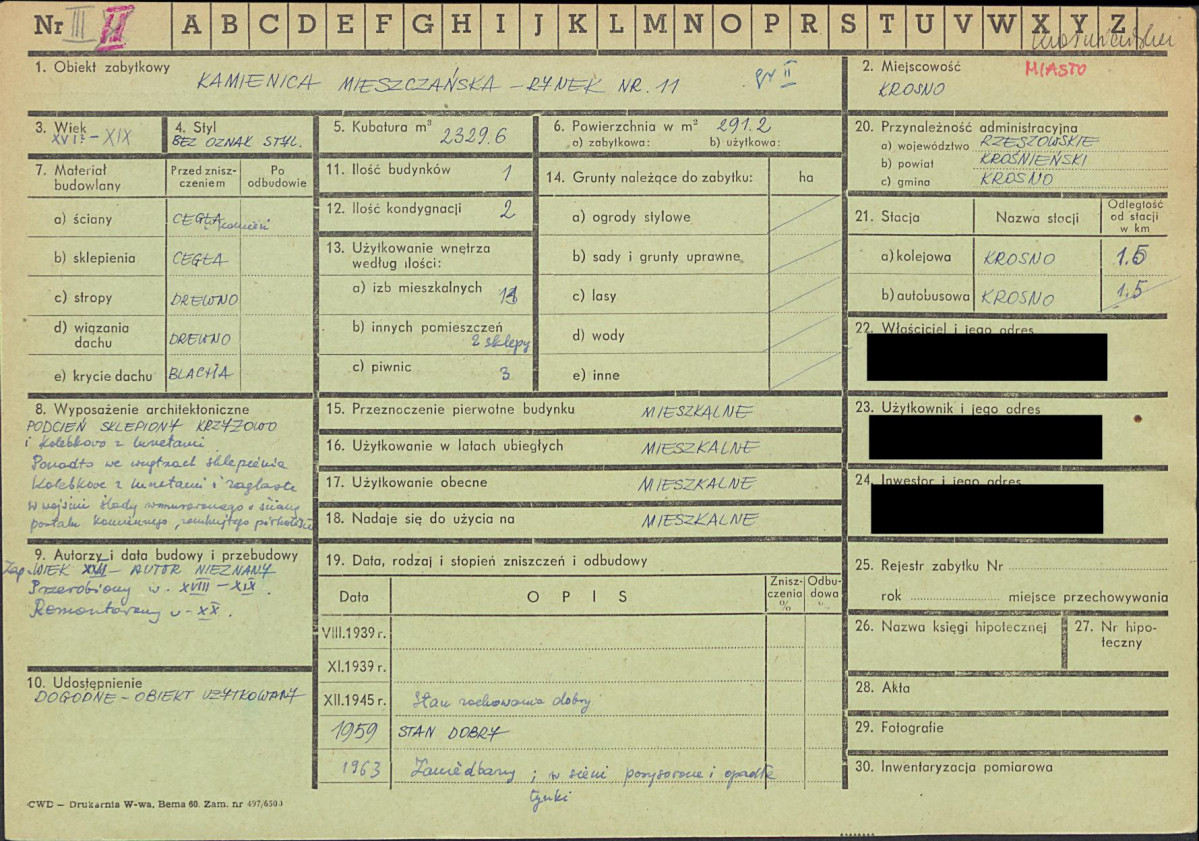 Nr III II A B C D E F G H I J K L M N O P R S T U V W X Y Z
1. Obiekt zabytkowy
KAMIENICA MIESZCZAŃSKA – RYNEK NR. 11 gr II
2. Miejscowość MIASTO
KROSNO
3. Wiek
XVI? – XIX
4. Styl
BEZ OZNAK STYL.
5. Kubatura m³
2329.6
6. Powierzchnia w m² 291.2
a) zabytkowa: b) użytkowa:
7. Materiał budowlany
Przed zniszczeniem
Po odbudowie
a) ściany CEGŁA kamień
b) sklepienia CEGŁA
c) stropy DREWNO
d) wiązania dachu DREWNO
e) krycie dachu BLACHA
8. Wyposażenie architektoniczne
PODCIEŃ SKLEPIONY KRZYŻOWO
i kolebkowo z lunetami
Ponadto we wnętrzach sklepienia
kolebkowe z lunetami i żaglaste
w sieni ślady wmurowanego w ścianę
portalu kamiennego, zamkniętego
9. Autorzy i data budowy i przebudowy
WIEK XVI – AUTOR NIEZNANY
Przerobiony w. XVIII – XIX.
Remontowany w – XX.
10. Udostępnienie
DOGODNE – OBIEKT UŻYTKOWANY
11. Ilość budynków 1
12. Ilość kondygnacji 2
13. Użytkowanie wnętrza
według ilości:
a) izb mieszkalnych 11
b) innych pomieszczeń
2 sklepy
c) piwnic 3
14. Grunty należące do zabytku: ha
a) ogrody stylowe
b) sady i grunty uprawne
c) lasy
d) wody
e) inne
15. Przeznoczenie pierwotne budynku MIESZKALNE
16. Użytkowanie w latach ubiegłych MIESZKALNE
17. Użytkowanie obecne MIESZKALNE
18. Nadaje się do użycia na MIESZKALNE
19. Data, rodzaj i stopień zniszczeń i odbudowy
Data OPIS Zniszczenia % Odbudowa %
VIII.1939 r.
XI.1939 r.
XII.1945 r. Stan zachowania dobry
1959 STAN DOBRY
1963 Zaniedbany; w sieni porysowane i opadłe
tynki
20. Przynależność administracyjna
a) województwo RZESZOWSKIE
b) powiat KROŚNIEŃSKI
c) gmina KROSNO
21. Stacja Nazwa stacji Odległość od stacji w km
a) kolejowa KROSNO 1.5
b) autobusowa KROSNO 1.5
22. Właściciel i jego adres
23. Użytkownik i jego adres
24. Inwestor i jego adres
25. Rejestr zabytku Nr
rok miejsce przechowywania
26. Nazwa księgi hipotecznej
27. Nr hipoteczny
28. Akta
29. Fotografie
30. Inwentaryzacja pomiarowa
CWD – Drukarnia W-wa, Bema 60. Zam. nr 497/6500